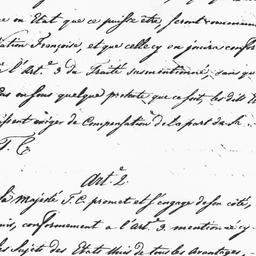 en Etat que ce puisse être, seront
ation Françoise, et que celle cy en jouira confor
à l'Art.e 3 du Traité susmentionné, sans que
sous quelque pretexte que ce soit, les dits Et
issent exiger de Compensation de la part de Sa
T. C.
Art.e 2.
Sa Majesté T. C. promet et s'engage de son côté,
nis, conformement a l'Art.e 3. mentionné cy-
les Sujets des Etats Unis de tous les avantages,